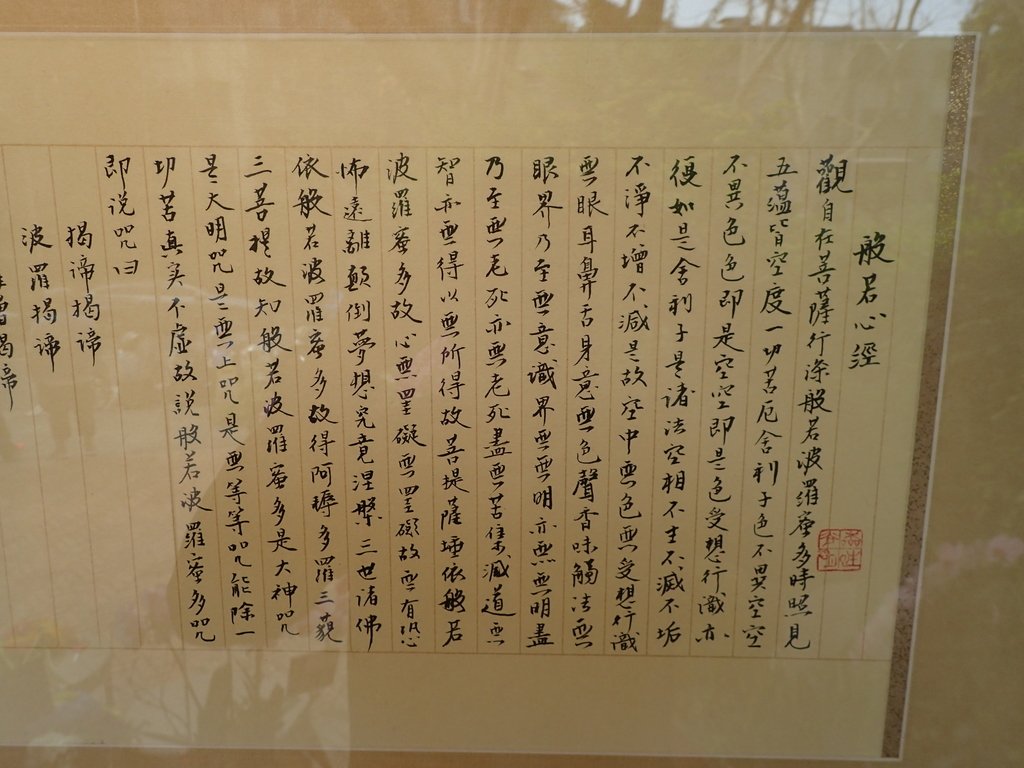 般若心經
觀自在菩薩行深般若波羅蜜多時照見
五蘊皆空度一切苦厄舍利子色不異空空
不異色色即是空空即是色受想行識亦
復如是舍利子是諸法空相不生不滅不垢
不淨不增不減是故空中無色無受想行識
無眼耳鼻舌身意無色聲香味觸法無
眼界乃至無意識界無無明亦無無明盡
乃至無老死亦無老死盡無苦集滅道無
智亦無得以無所得故菩提薩埵依般若
波羅蜜多故心無罣礙無罣礙故無有恐
怖遠離顛倒夢想究竟涅槃三世諸佛
依般若波羅蜜多故得阿耨多羅三藐
三菩提故知般若波羅蜜多是大神咒
是大明咒是無上咒是無等等咒能除一
切苦真实不虛故說般若波羅蜜多咒
即说咒曰
揭諦揭諦
波羅揭諦
僧揭諦